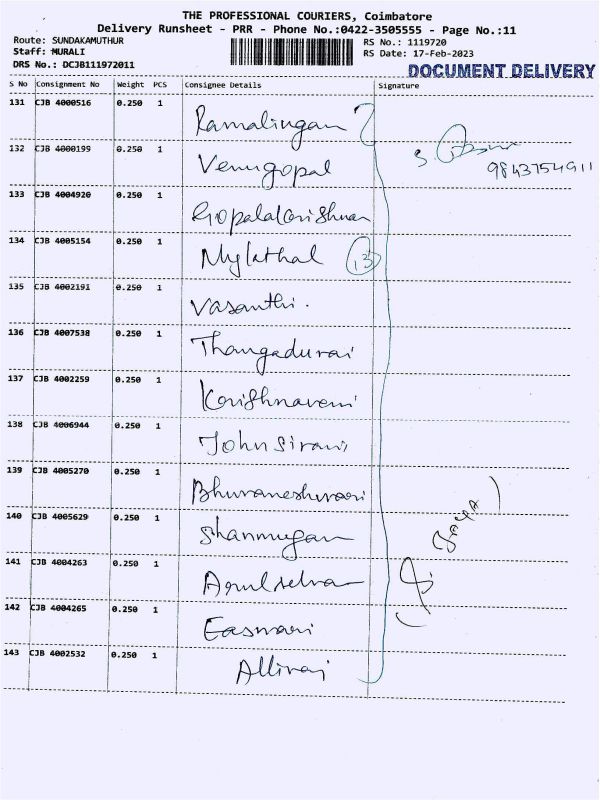 THE PROFESSIONAL COURIERS, Coimbatore
Delivery Runsheet - PRR - Phone No.:0422-3505555 - Page No.:11
Route: SUNDAKAMUTHUR
RS No.: 1119720
Staff: MURALI
RS Date: 17-Feb-2023
DRS No.: DCJB111972011
DOCUMENT DELIVERY
S No Consignment No Weight PCS Consignee Details Signature
131 CJB 4000516 0.250 1 Ramalingam
132 CJB 4000199 0.250 1 Venugopal
9843754911
133 CJB 4004920 0.250 1 Gopalakrishnan
134 CJB 4005154 0.250 1 Mylathal 13
135 CJB 4002191 0.250 1 Vasanthi.
136 CJB 4007538 0.250 1 Thangadurai
137 CJB 4002259 0.250 1 Krishnaveni
138 CJB 4006944 0.250 1 Johnsirani
139 CJB 4005270 0.250 1 Bhuvaneshwari
140 CJB 4005629 0.250 1 Shanmugam
141 CJB 4004263 0.250 1 Arulselvan
142 CJB 4004265 0.250 1 Easwari
143 CJB 4002532 0.250 1 Alliraj